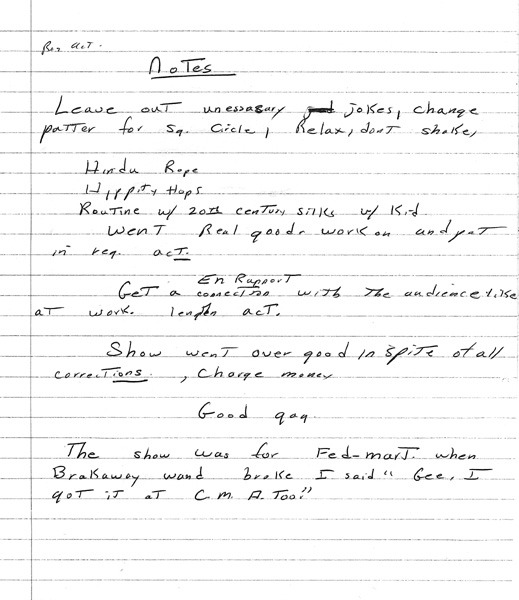 Reg act.
Notes
Leave out unessasary jokes, change
patter for Sq. Circle, Relax, dont shake,
Hindu Rope
Hippity Hops
Routine w/ 20th century silks w/ Kid.
went Real good. work on and put
in reg. act.
En Rapport
Get a connection with the audience like
at work. lengthn act.
Show went over good in spite of all
corrections. , Charge money
Good gag.
The show was for Fed-mart. when
Brakaway wand broke I said "Gee, I
got it at C.M.A. Too!"